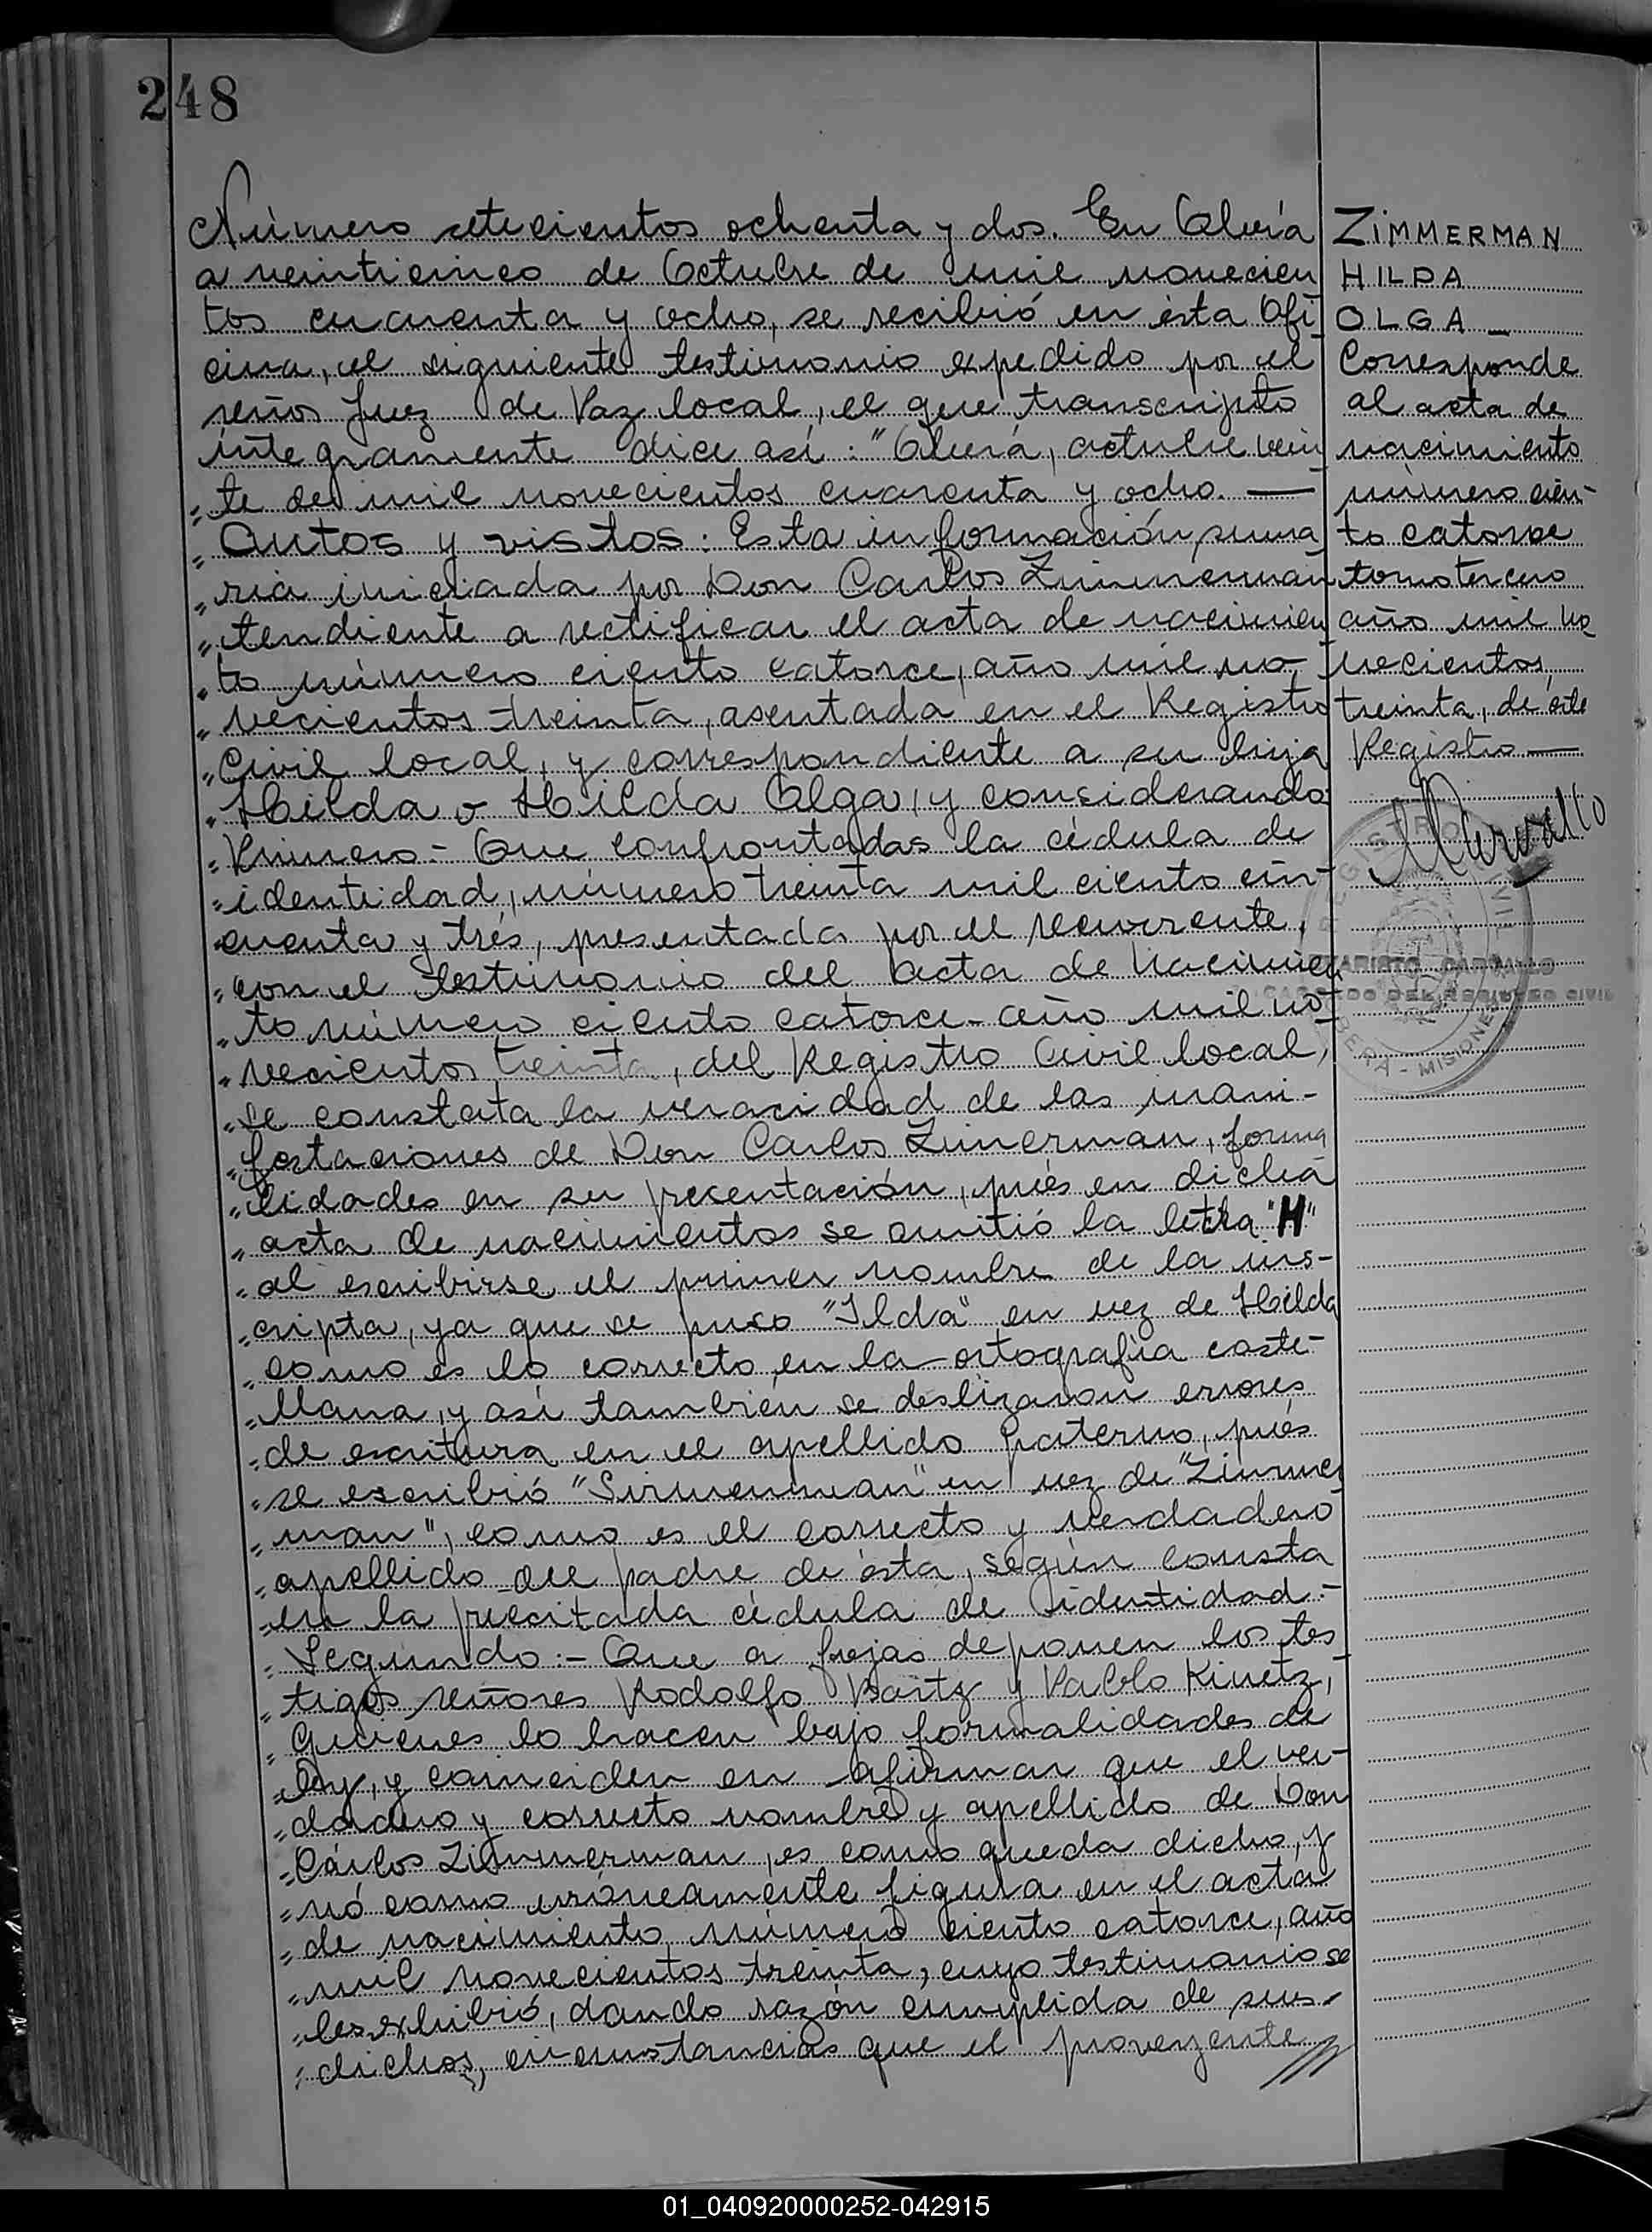 248
Número setecientos ochenta y dos. En Oberá
a veinticinco de Octubre de mil novecien
tos cuarenta y ocho, se recibió en ésta Ofi
cina, el siguiente testimonio expedido por el
señor Juez de Paz local, el que transcripto
integramente dice así: "Oberá, octubre vein
" te de mil novecientos cuarenta y ocho. —
" Autos y vistos: Esta información suma
" ria iniciada por Don Carlos Zimmerman
" tendiente a rectificar el acta de nacimien
" to número ciento catorce, año mil no-
" vecientos treinta, asentada en el Registro
" Civil local, y correspondiente a su hija
" Hilda o Hilda Olga, y considerando
" Primero - Que confrontadas la cédula de
" identidad, número treinta mil ciento cin-
" cuenta y trés, presentada por el recurrente,
" con el testimonio del acta de nacimien
" to número ciento catorce - año mil no-
" vecientos treinta, del Registro Civil local,
" se constata la veracidad de las mani-
" festaciones de Don Carlos Zimerman, forma
" lidades en su presentación, pués en dicha
" acta de nacimientos se omitió la letra "H"
" al escribirse el primer nombre de la ins-
" cripta, ya que se puso "Ilda" en vez de Hilda
" como es lo correcto en la ortografía caste-
" llana, y así también se deslizaron errores
" de escritura en el apellido paterno, pués
" se escribió "Sirmenman" en vez de "Zimmer
" man", como es el correcto y verdadero
" apellido del padre de ésta, según consta
" en la precitada cédula de identidad.-
" Segundo:- Que a fojas deponen los tes
" tigos señores Rodolfo Bartz y Pablo Kinetz,
" quienes lo hacen bajo formalidades de
" ley, y coinciden en afirmar que el ver-
" dadero y correcto nombre y apellido de Don
" Cárlos Zimmerman, es como queda dicho, y
" nó como erróneamente figura en el acta
" de nacimiento número ciento catorce, año
" mil novecientos treinta, cuyo testimonio se
" les exhibió, dando razón cumplida de sus
" dichos, circunstancias que el proveyente
ZIMMERMAN
HILDA
OLGA —
Corresponde
al acta de
nacimiento
número cien-
to catorce
tomo tercero
año mil no
vecientos
treinta, de éste
Registro —
REGISTRO CIVIL
CARVALLO
DO DEL REGISTRO CIVIL
OBERA - MISIONES
01_040920000252-042915